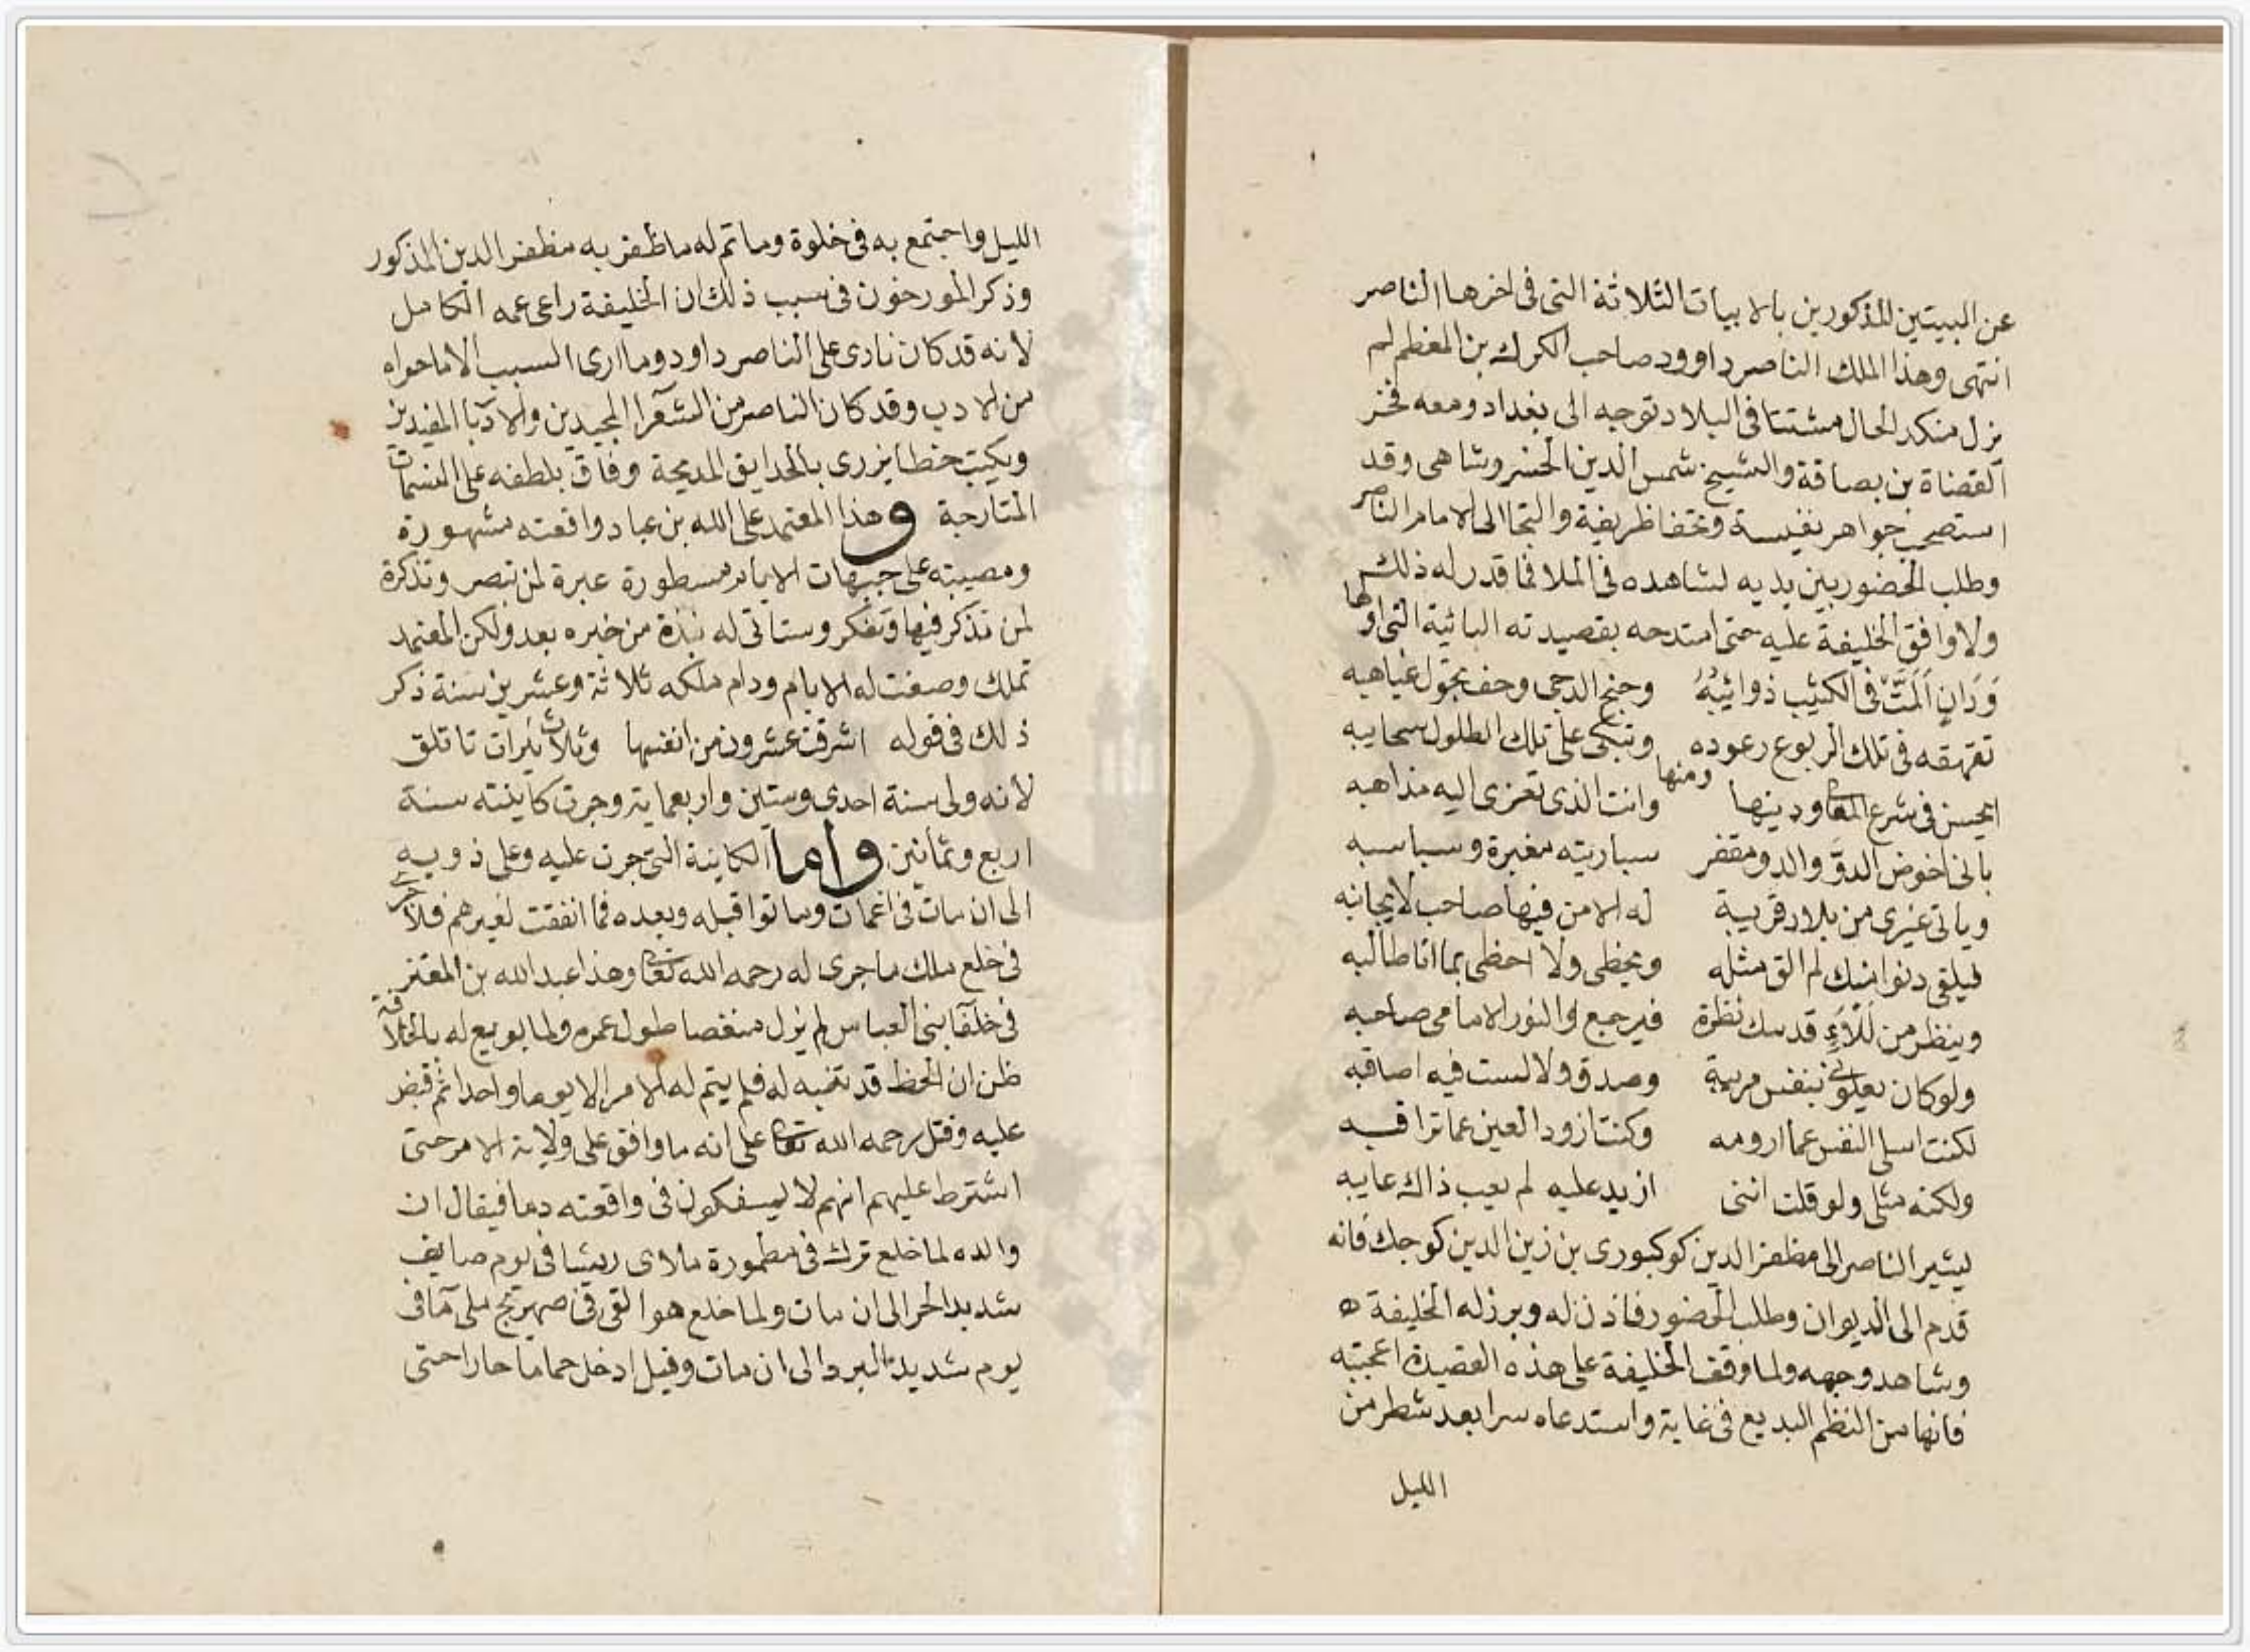 عن البيتين المذكورين بالابيات الثلاثة التى فى اخرها الناصر
انتهى وهذا الملك الناصر داوود صاحب الكرك بن المعظم لم
يزل منكد الحال مشتتا فى البلاد توجه الى بغداد ومعه فخر
القضاة بن بصاقة والشيخ شمس الدين الخسروشاهى وقد
استصحب جواهر نفيسة وتحفا ظريفة والتجا الى الامام الناصر
وطلب الحضور بين يديه لشاهده فى الملا فما قدر له ذلك
ولا وافق الخليفة عليه حتى امتدحه بقصيدته البائية التى اولها
وَدَانٍ اَلَمَّتْ فى الكثيب ذوائبُهُ وجنح الدجى وحف تجول غياهبه
تقهقه فى تلك الربوع رعوده وتبكى على تلك الطلول سحايبه
ومنها
ايحسن فى شرع المعالى ودينها وانت الذى تعزى اليه مذاهبه
بانى اخوض الدوَّ والدو مقفر سباريته مغبرة وسباسبه
وياتى غيرى من بلاد قريبة له الامن فيها صاحب لا يجانبه
فيلقى دنوا منك لم الق مثله ويحظى ولا احظى بما انا طالبه
وينظر من لألآء قدسك نظرة فيرجع والنور الامامى صاحبه
ولو كان يعلونى بنفس مريبة وصدق ولا لست فيه اصاقبه
لكنت اسلى النفس عما ارومه وكنت ازود العين عما تراقبه
ولكنه مثلى ولو قلت اننى ازيد عليه لم يعب ذاك عايبه
يشير الناصر الى مظفر الدين كوكبورى بن زين الدين كوجك فانه
قدم الى الديوان وطلب الحضور فاذن له وبرز له الخليفة ه
وشاهد وجهه ولما وقف الخليفة على هذه القصيدة اعجبته
فانها من النظم البديع فى غاية واستدعاه سرا بعد شطر من
الليل
الليل واجتمع به فى خلوة وما تم له ما ظفر به مظفر الدين المذكور
وذكر المورخون فى سبب ذلك ان الخليفة راعى عمه الكامل
لانه قد كان نادى على الناصر داود وما ارى السبب الا ما حواه
من الادب وقد كان الناصر من الشعرآ المجيدين والادبآ المفيدين
ويكتب خطا يزرى بالحدايق المدبجة وفاق بلطفه على النسمات
المتارجة وهذا المعتمد على الله بن عباد واقعته مشهورة
ومصيبته على جبهات الايام مسطورة عبرة لمن تبصر وتذكرة
لمن تذكر فيها وتفكر وستاتى له نبذة من خبره بعد ولكن المعتمد
تملك وصفت له الايام ودام ملكه ثلاثة وعشرين سنة ذكر
ذلك فى قوله اشرقت عشرون من انفسها وثلاث نيرات تاتلق
لانه ولى سنة احدى وستين واربعماية وجرت كاينته سنة
اربع وثمانين واما الكاينة التى جرت عليه وعلى ذويه
الى ان مات فى اغمات وماتوا قبله وبعده فما اتفقت لغيرهم فلا جرى
فى خلع ملك ما جرى له رحمه الله تعالى وهذا عبد الله بن المعتز
فى خلفآ بنى العباس لم يزل منغصا طول عمره ولما بويع له بالخلافة
ظن ان الحظ قد تنبه له فلم يتم له الامر الا يوما واحدا ثم قبض
عليه وقتل رحمه الله تعالى على انه ما وافق على ولاية الامر حتى
اشترط عليهم انهم لا يسفكون فى واقعته دما فيقال ان
والده لما خلع ترك فى مطمورة ملاى ريشا فى يوم صايف
شديد الحر الى ان مات ولما خلع هو القى فى صهريج ملى مآ فى
يوم شديد البرد الى ان مات وقيل ادخل حماما حارا حتى